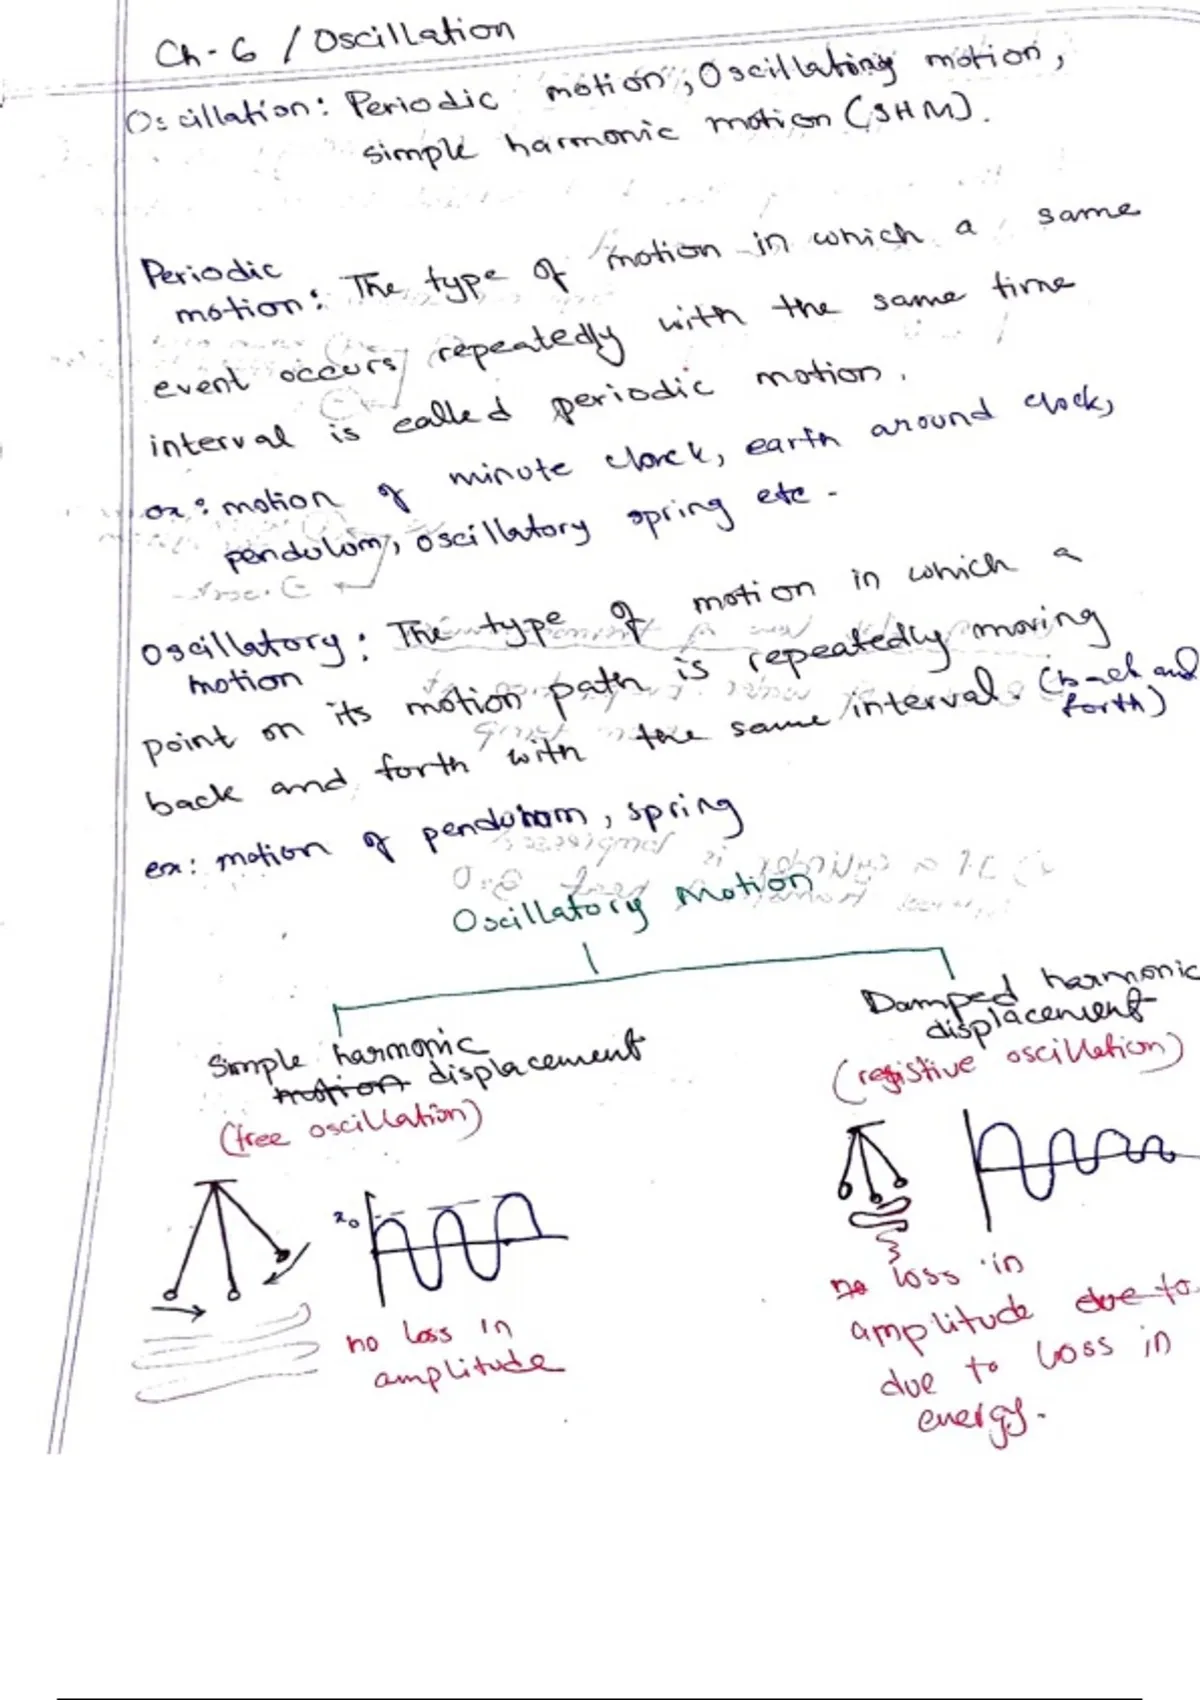 Ch-6 / Oscillation
Oscillation: Periodic motion, Oscillating motion,
simple harmonic motion (SHM).
Periodic
motion: The type of motion in which a same
event occurs repeatedly with the same time
interval is called periodic motion.
ex: motion of minute clock, earth around clock,
pendulum, oscillatory spring etc.
Oscillatory: The type of motion in which a
motion
point on its motion path is repeatedly moving
back and forth with the same interval. (back and
forth)
ex: motion of pendulum, spring
Oscillatory Motion
Simple harmonic
motion displacement
(free oscillation)
Damped harmonic
displacement
(resistive oscillation)
x₀
no loss in
amplitude
no loss in
amplitude due to
due to loss in
energy.